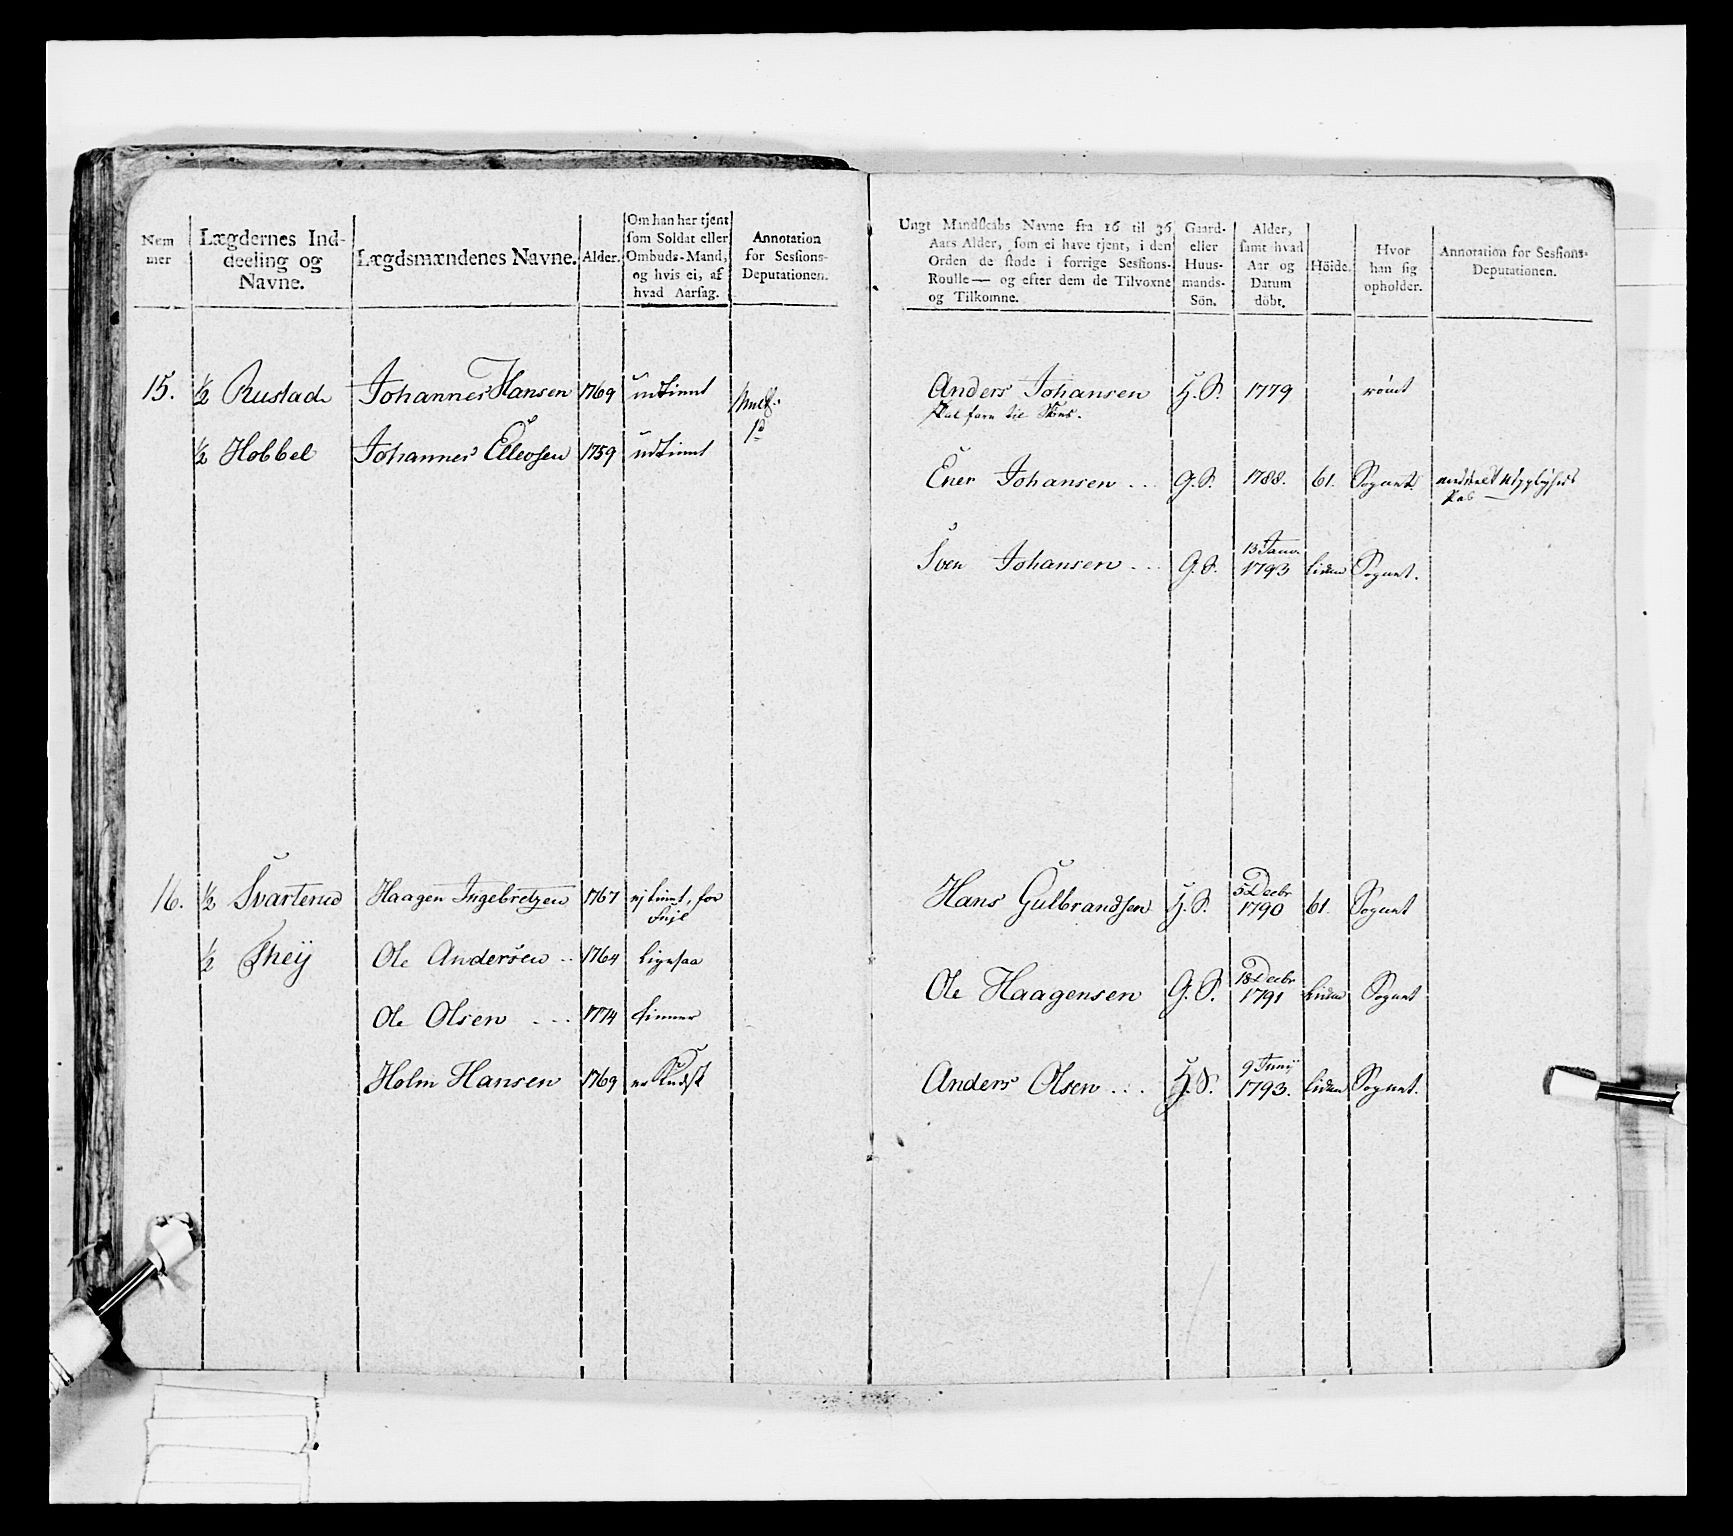 Nem
mer
Lægdernes Ind-
deeling og
Navne.
Lægdsmændenes Navne.
Alder.
Om han har tjent
som Soldat eller
Ombuds-Mand,
og hvis ei, af
hvad Aarsag.
Annotation
for Sessions-
Deputationen.
15. ½ Rustad Johannes Hansen 1769 udtient
½ Hobbel Johannes Ellevsen 1759 udtient
16. ½ Svarterud Haagen Ingebretzen 1767 ej tient, for
Feil
½ Theÿ Ole Andersen .. 1764 ligesaa
Ole Olsen ... 1774 tiener
Holm Hansen 1769
Ungt Mandskabs Navne fra 16 til 36
Aars Alder, som ei have tjent, i den
Orden de stode i forrige Sessions-
Roulle — og efter dem de Tilvoxne
og Tilkomne.
Gaard-
eller
Huus-
mands-
Sön.
Alder,
samt hvad
Aar og
Datum
döbt.
Höide.
Hvor
han sig
opholder.
Annotation for Sessions-
Deputationen.
Anders Johansen H. S. 1779 römt
Skal fare til Söes.
Ener Johansen ... G. S. 1788. 61. Sognet
Sven Johansen ... G. S. 13 Janv. 1793 liden Sognet.
Hans Gulbrandsen H. S. 5 Decbr 1790 61. Sognet
Ole Haagensen G. S. 18 Decbr 1791 liden Sognet
Anders Olsen ... H. S. 9 Junÿ 1793. liden Sognet.